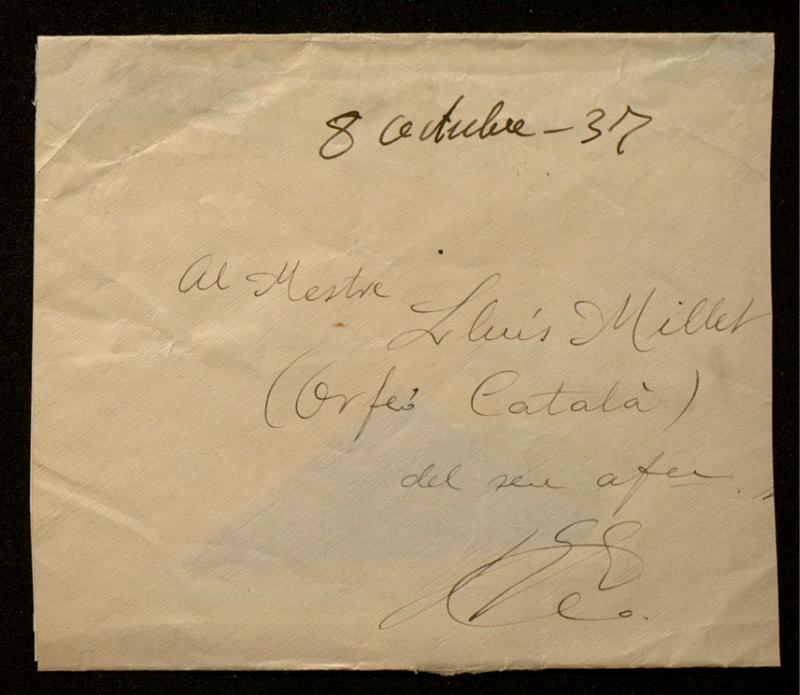 8 octubre - 37
Al Mestre
Lluís Millet
(Orfeó Català)
del seu afm.